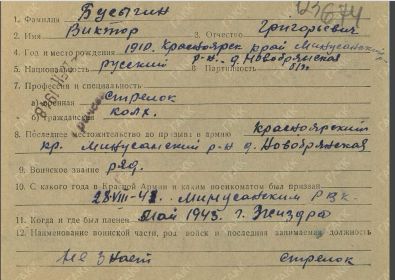 23674
1. Фамилия Бусыгин
2. Имя Виктор 3. Отчество Григорьевич
4. Год и место рождения 1910. Красноярск край Минусанский
р-н. д. Новобрянская
5. Национальность русский 6. Партийность б/п
7. Профессия и специальность
а) военная стрелок
б) гражданская колх.
8. Последнее местожительство до призыва в армию Красноярский
кр. Минусанский р-н д. Новобрянская
9. Воинское звание ряд.
10. С какого года в Красной Армии и каким военкоматом был призван
28-VIII-41. Минусанским РВК.
11. Когда и где был пленен Май 1943. г. Жиздра
12. Наименование воинской части, род войск и последняя занимаемая должность
Не знает стрелок